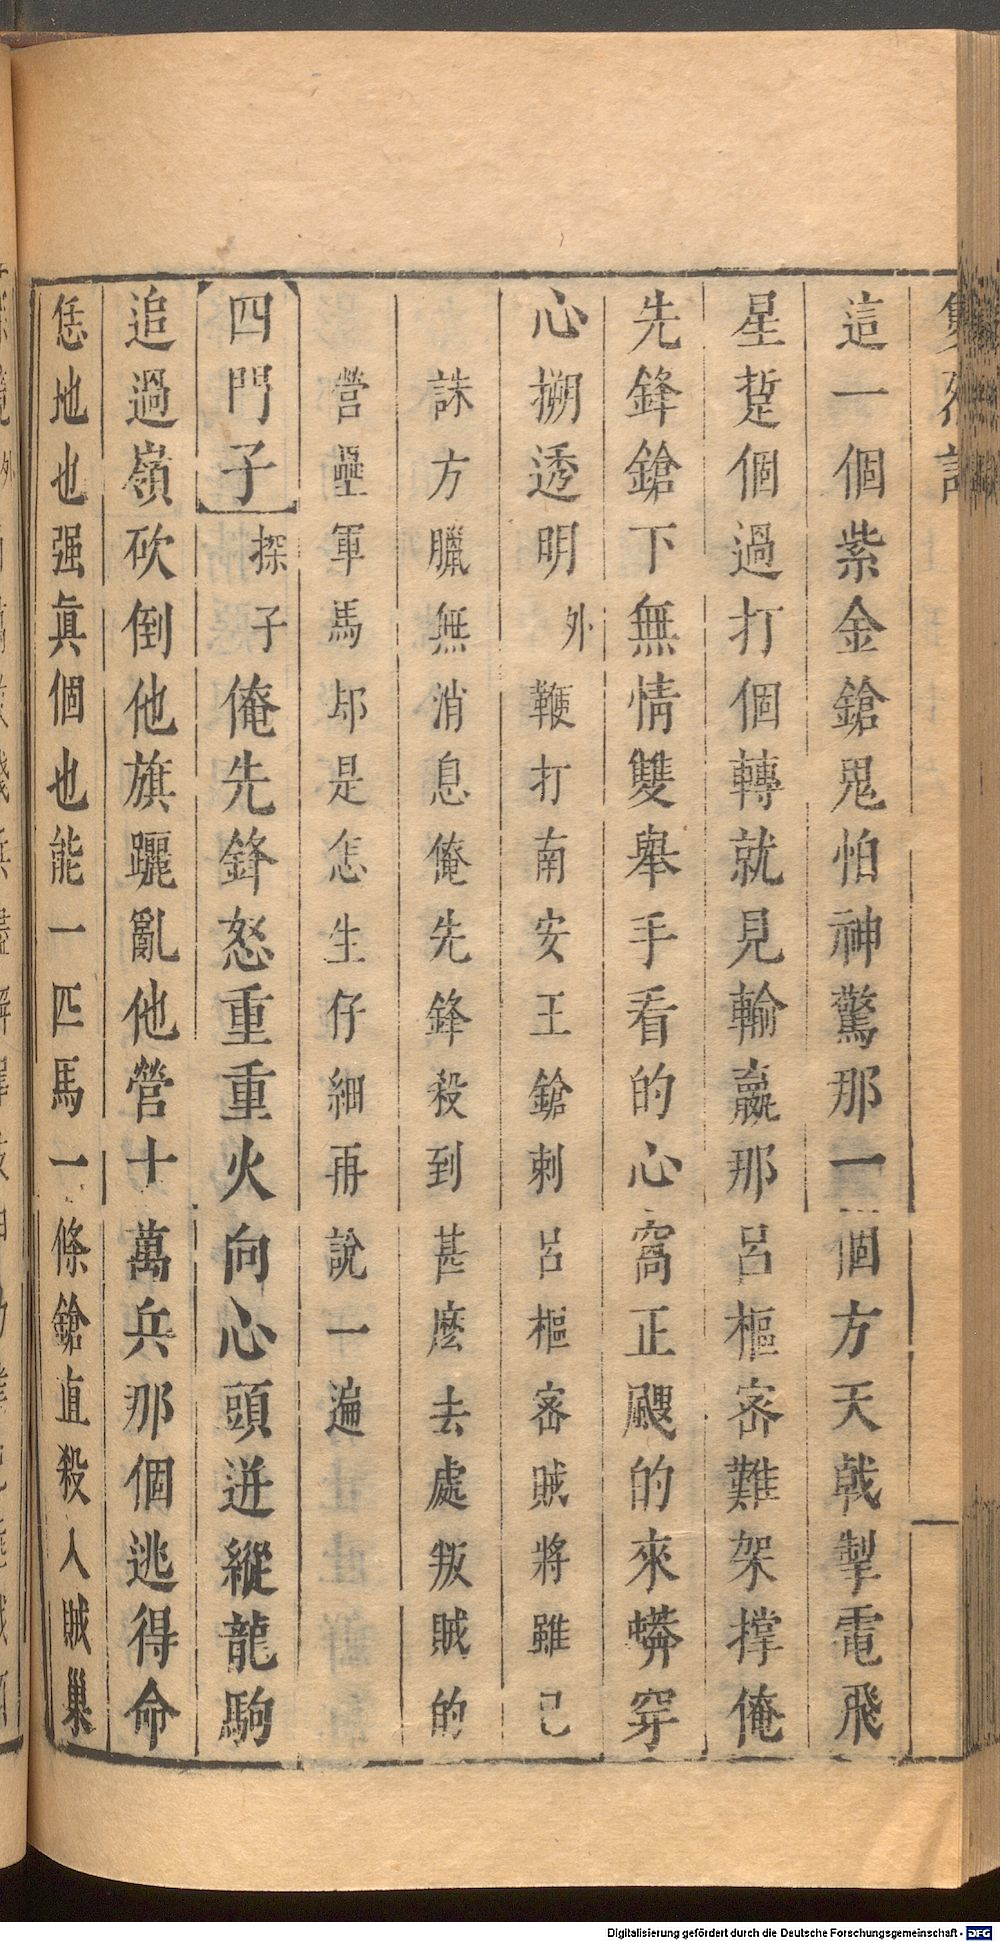 這一個紫金鎗鬼怕神驚那一個方天戟掣電飛
星踅個過打個轉就見輸嬴那呂樞密難架撑俺
先鋒鎗下無情雙舉手看的心窩正颼的來蟒穿
心搠透明外鞭打南安王鎗刺呂樞密賊將雖已
誅方臘無消息俺先鋒殺到甚麼去處叛賊的
營壘軍馬却是怎生仔細再說一遍
四門子探子俺先鋒怒重重火向心頭迸縱龍駒
追過嶺砍倒他旗躧亂他營十萬兵那個逃得命
恁地也强眞個也能一匹馬一條鎗直殺人賊巢
Digitalisierung gefördert durch die Deutsche Forschungsgemeinschaft - DFG